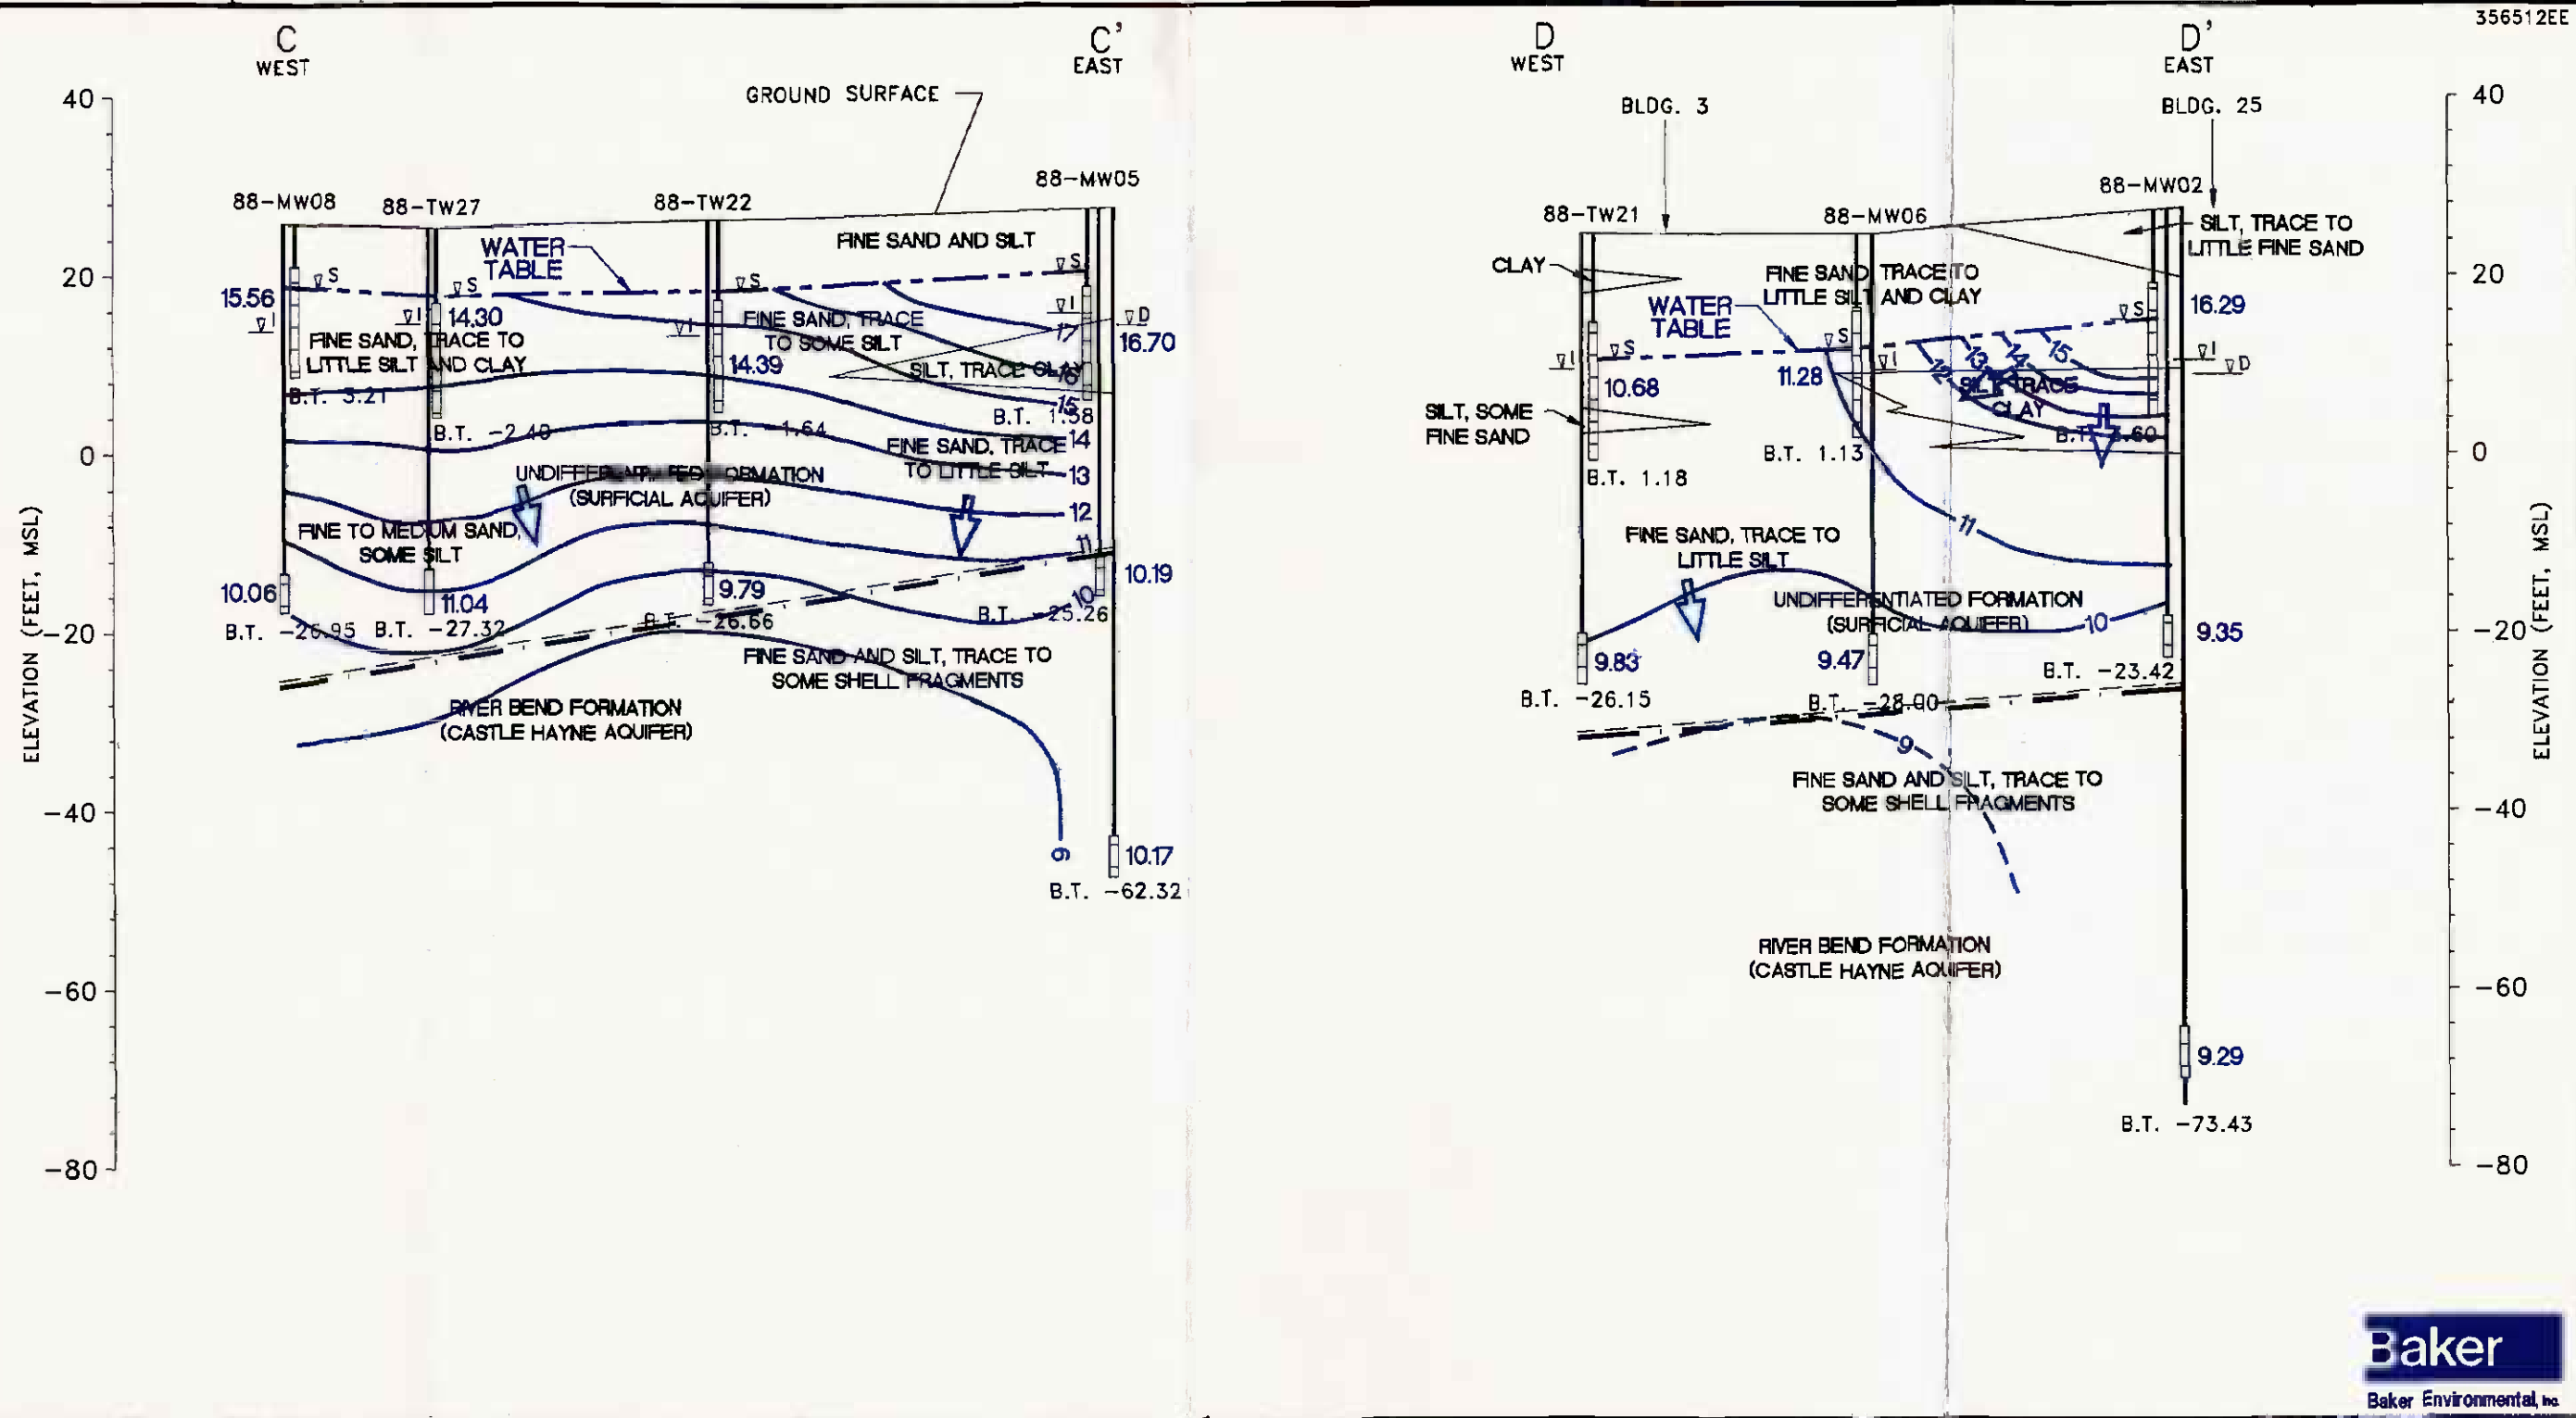 356512EE
C
WEST
C'
EAST
D
WEST
D'
EAST
GROUND SURFACE
BLDG. 3
BLDG. 25
40
20
0
-20
-40
-60
-80
ELEVATION (FEET, MSL)
88-MW08
88-TW27
88-TW22
88-MW05
WATER
TABLE
FINE SAND AND SILT
S
S
S
S
I
I
I
I
D
15.56
14.30
14.39
16.70
FINE SAND, TRACE TO
LITTLE SILT AND CLAY
FINE SAND, TRACE
TO SOME SILT
SILT, TRACE CLAY
17
16
15
14
13
12
11
10
9
B.T. 3.21
B.T. -2.40
B.T. -1.64
B.T. 1.58
FINE SAND, TRACE
TO LITTLE SILT
UNDIFFERENTIATED FORMATION
(SURFICIAL AQUIFER)
FINE TO MEDIUM SAND,
SOME SILT
10.06
11.04
9.79
10.19
B.T. -26.95
B.T. -27.32
B.T. -26.66
B.T. -25.26
FINE SAND AND SILT, TRACE TO
SOME SHELL FRAGMENTS
RIVER BEND FORMATION
(CASTLE HAYNE AQUIFER)
10.17
B.T. -62.32
88-TW21
88-MW06
88-MW02
SILT, TRACE TO
LITTLE FINE SAND
CLAY
FINE SAND, TRACE TO
LITTLE SILT AND CLAY
WATER
TABLE
S
S
S
I
I
I
D
10.68
11.28
16.29
12
13
14
15
SILT, TRACE
CLAY
SILT, SOME
FINE SAND
B.T. 1.18
B.T. 1.13
11
FINE SAND, TRACE TO
LITTLE SILT
UNDIFFERENTIATED FORMATION
(SURFICIAL AQUIFER)
10
9.83
9.47
9.35
B.T. -26.15
B.T. -28.00
B.T. -23.42
9
FINE SAND AND SILT, TRACE TO
SOME SHELL FRAGMENTS
RIVER BEND FORMATION
(CASTLE HAYNE AQUIFER)
9.29
B.T. -73.43
40
20
0
-20
-40
-60
-80
ELEVATION (FEET, MSL)
Baker
Baker Environmental, Inc.